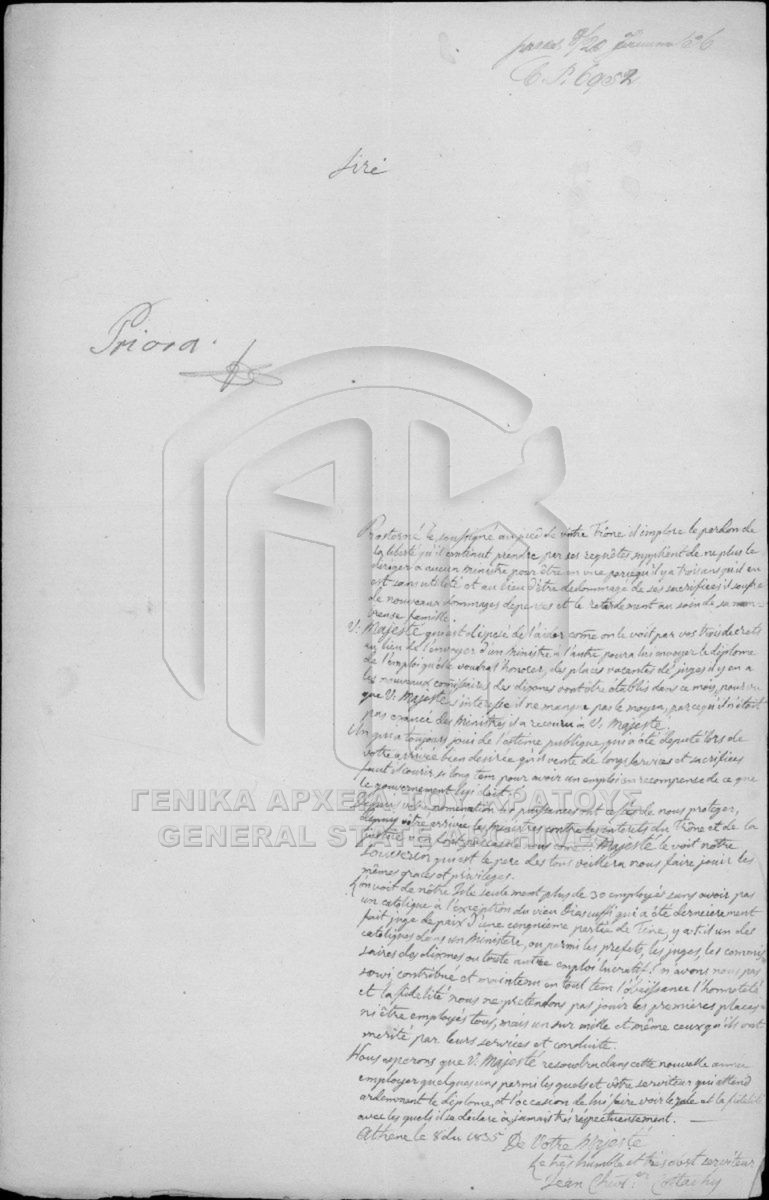 praes 8/20 Januar 836
C. P. 6952
Siré
Priora.
Prosterné le soussigné au pieè de votre Trône il implore le pardon de
la liberté qu'il continut prendre par ses reqvêtes suppliant de ne plus le
deroger a aucun ministre pour être en vue parcequ'il y a trois ans qu'il en
est sans utileté et au lieu d'être dedommagé de ses sacrifices il soufre
de nouveaux dommages depences et le retardement au soin de sa nom-
breuse famille.
V: Majesté qui est disposé de l'aider come on le voit par vos trois decrets
au lieu de l'envoyer d'un Ministre à l'autre pourra lui envoyer le diplome
de l'emploi qu'elle voudra l'honorer, des places vacentes de juges il y en a
les nouveaux comissaires des dixmes vont être établis dans ce mois, pourvu
que V: Majesté s'interesse il ne manque pas le moyen, parcequ'il n'étoit
pas exaucé des Ministres il a recouru à V: Majesté
Un qui a toujours joui de l'estime publique, qui a été deputé lors de
votre arrivée bien desirée qui vente de longs services et sacrifices
faut il courir si long tem pour avoir un emploi en recompense de ce que
le gouvernement lui doit?
Depuis votre nomination les puissances ont de nous proteger,
depuis votre arrivée les Ministres contre les interets du Trône et de la
justice V: Majesté le voit nôtre
souverain qui est le pere des tous veillera nous faire jouir les
mêmes graces et privileges.
L'on voit de nôtre Isle seulement plus de 30 employés sans avoir pas
un catolique à l'exception du vieu qui a été dernierement
fait juge de paix d'une cinquieme partie de Tine, y a-t-il un des
catoliques dans un Ministere, ou parmi les prefets, les juges, les commis-
saires des dixmes ou toute autre emploi lucratif? n'avons nous pas
servi contribué et maintenu en tout tem l'obéissance l'honneteté
et la fidelité nous ne pretendons pas jouir les premieres places
ni être employés tous, mais un sur mille et même ceux qu'ils ont
merité par leurs services et conduite.
Nous esperons que V: Majesté resoudra dans cette nouvelle année
employer quelques uns parmi les quels est votre serviteur qui attend
ardemment le diplome, et l'occasion de lui faire voir le zele et la fidelité
avec les quels il se declare à jamais trés réspectueusement.
Athène le 8 du 1835 De Votre Majesté
Le trés humble et trés serviteur
Jean Chev.er